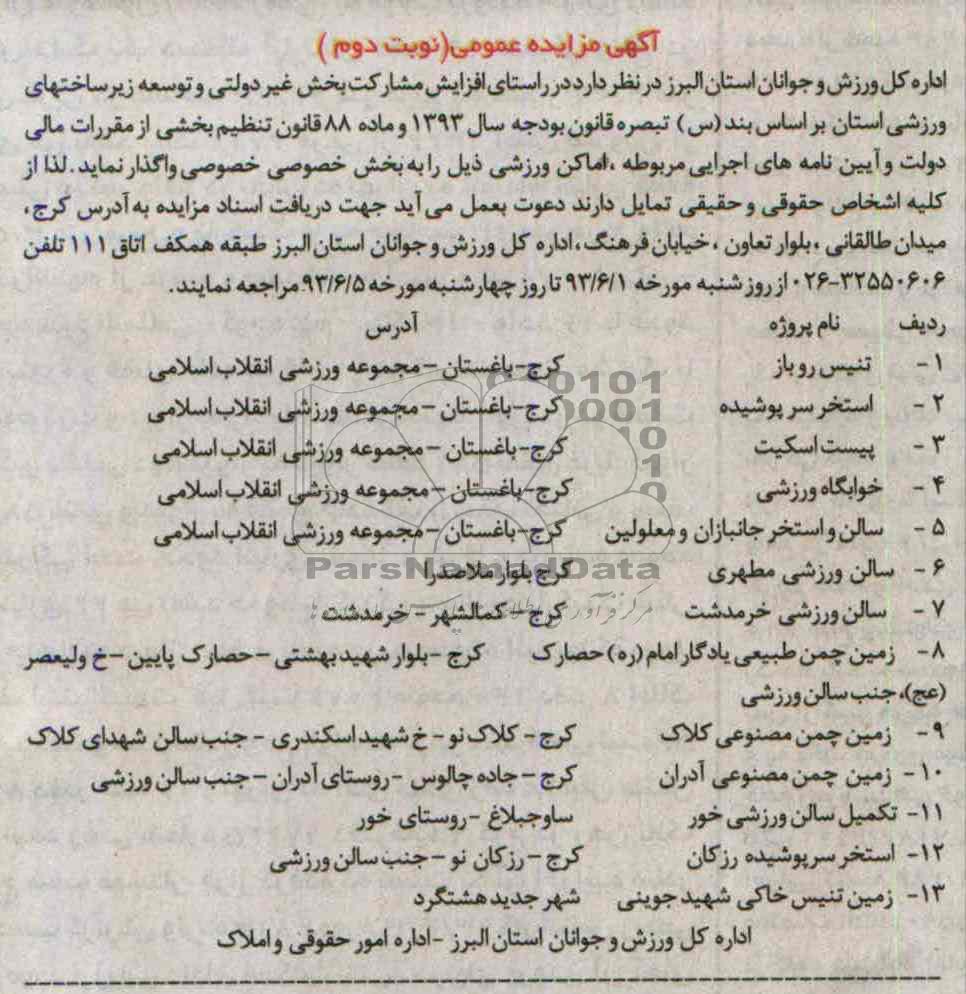 آگهی مزایده عمومی(نوبت دوم )
اداره کل ورزش و جوانان استان البرز در نظر دارد در راستای افزایش مشارکت بخش غیر دولتی و توسعه زیر ساختهای
ورزشی استان بر اساس بند (س) تبصره قانون بودجه سال ۱۳۹۳ و ماده ۸۸ قانون تنظیم بخشی از مقررات مالی
دولت و آیین نامه های اجرایی مربوطه ،اماکن ورزشی ذیل را به بخش خصوصی خصوصی واگذار نماید. لذا از
کلیه اشخاص حقوقی و حقیقی تمایل دارند دعوت بعمل می آید جهت دریافت اسناد مزایده به آدرس کرج،
میدان طالقانی ،بلوار تعاون ،خیابان فرهنگ ،اداره کل ورزش و جوانان استان البرز طبقه همکف اتاق ۱۱۱ تلفن
۰۲۶-۳۲۵۵۰۶۰۶ از روز شنبه مورخه ۹۳/۶/۱ تا روز چهارشنبه مورخه ۹۳/۶/۵ مراجعه نمایند.
ردیف نام پروژه آدرس
۱ - تنیس رو باز کرج-باغستان - مجموعه ورزشی انقلاب اسلامی
۲ - استخر سر پوشیده کرج-باغستان - مجموعه ورزشی انقلاب اسلامی
۳ - پیست اسکیت کرج-باغستان - مجموعه ورزشی انقلاب اسلامی
۴ - خوابگاه ورزشی کرج-باغستان - مجموعه ورزشی انقلاب اسلامی
۵ - سالن و استخر جانبازان و معلولین کرج-باغستان - مجموعه ورزشی انقلاب اسلامی
۶ - سالن ورزشی مطهری کرج بلوار ملاصدرا
۷ - سالن ورزشی خرمدشت کرج - کمالشهر - خرمدشت
۸- زمین چمن طبیعی یادگار امام (ره) حصارک کرج -بلوار شهید بهشتی - حصارک پایین - خ ولیعصر
(عج)، جنب سالن ورزشی
۹ - زمین چمن مصنوعی کلاک کرج - کلاک نو - خ شهید اسکندری - جنب سالن شهدای کلاک
۱۰- زمین چمن مصنوعی آدران کرج - جاده چالوس - روستای آدران - جنب سالن ورزشی
۱۱- تکمیل سالن ورزشی خور ساوجبلاغ - روستای خور
۱۲- استخر سرپوشیده رزکان کرج - رزکان نو - جنب سالن ورزشی
۱۳- زمین تنیس خاکی شهید جوینی شهر جدید هشتگرد
اداره کل ورزش و جوانان استان البرز -اداره امور حقوقی و املاک
ParsNamadData